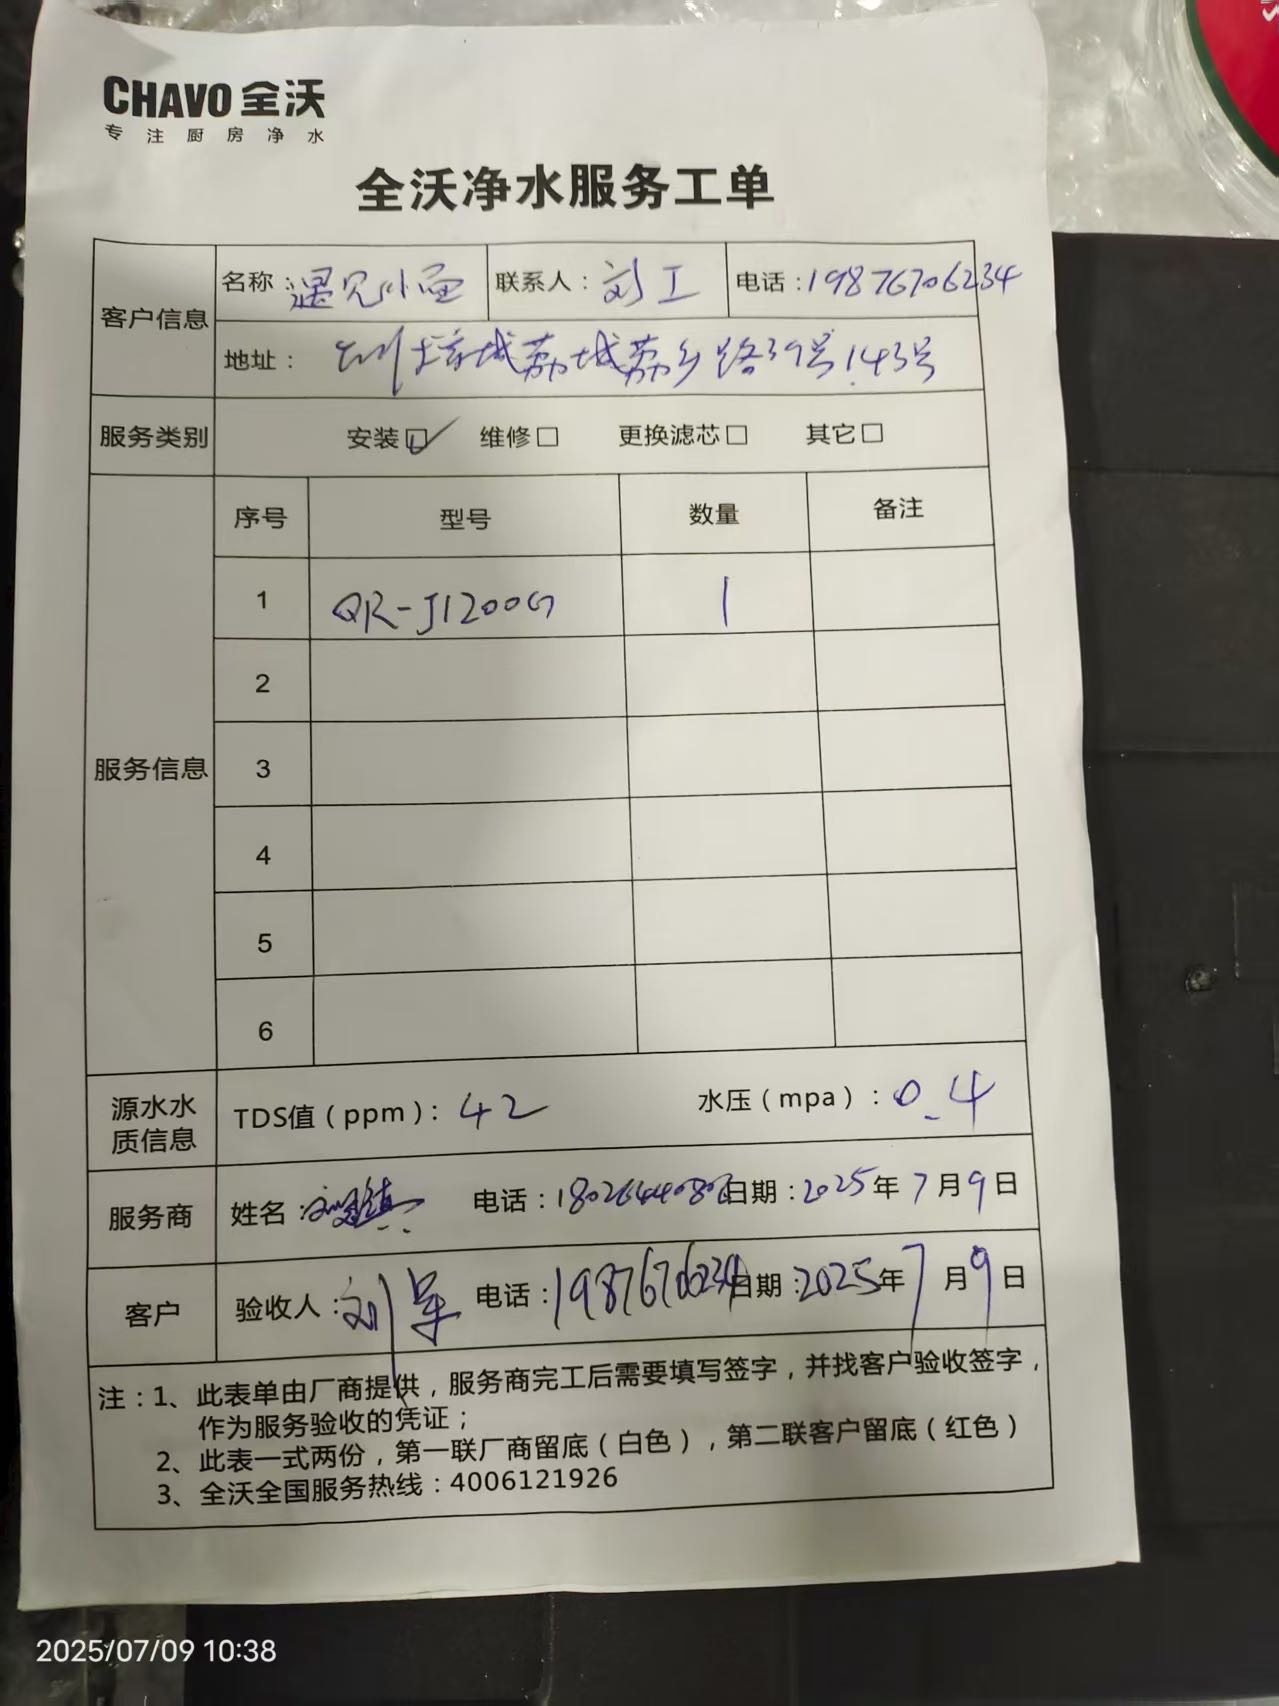 CHAVO 全沃
专注厨房净水
全沃净水服务工单
客户信息 名称：遇见小面 联系人：刘工 电话：19876706234
地址： 增城荔城荔乡路39号143号
服务类别 安装☑ 维修□ 更换滤芯□ 其它□
服务信息 序号 型号 数量 备注
1 QR-J1200G 1
2
3
4
5
6
源水水质信息 TDS值（ppm）：42 水压（mpa）：0.4
服务商 姓名： 电话： 日期：2025年7月9日
客户 验收人：刘军 电话：19876706234 日期：2025年7月9日
注：1、此表单由厂商提供，服务商完工后需要填写签字，并找客户验收签字，
作为服务验收的凭证；
2、此表一式两份，第一联厂商留底（白色），第二联客户留底（红色）
3、全沃全国服务热线：4006121926
2025/07/09 10:38